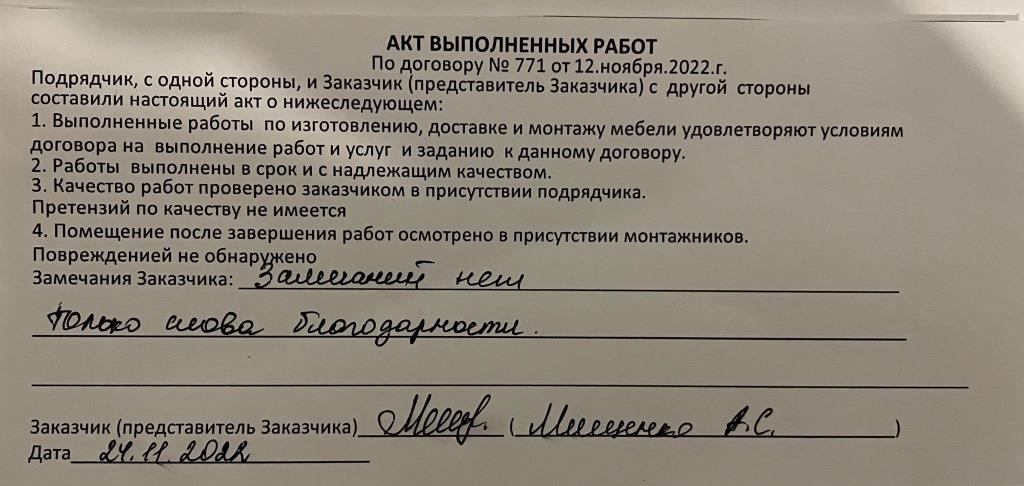 АКТ ВЫПОЛНЕННЫХ РАБОТ
По договору № 771 от 12.ноября.2022.г.
Подрядчик, с одной стороны, и Заказчик (представитель Заказчика) с другой стороны
составили настоящий акт о нижеследующем:
1. Выполненные работы по изготовлению, доставке и монтажу мебели удовлетворяют условиям
договора на выполнение работ и услуг и заданию к данному договору.
2. Работы выполнены в срок и с надлежащим качеством.
3. Качество работ проверено заказчиком в присутствии подрядчика.
Претензий по качеству не имеется
4. Помещение после завершения работ осмотрено в присутствии монтажников.
Поврежденией не обнаружено
Замечания Заказчика: Замечаний нет
только слова благодарности.
Заказчик (представитель Заказчика) ( Мищенко А.С. )
Дата 24.11.2022